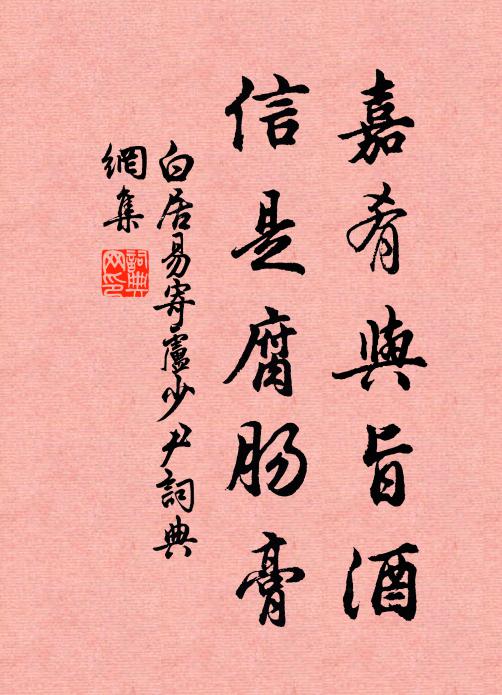 嘉肴與旨酒
信是腐肠膏
白居易寄盧少尹詞典
網集
詞典
网印